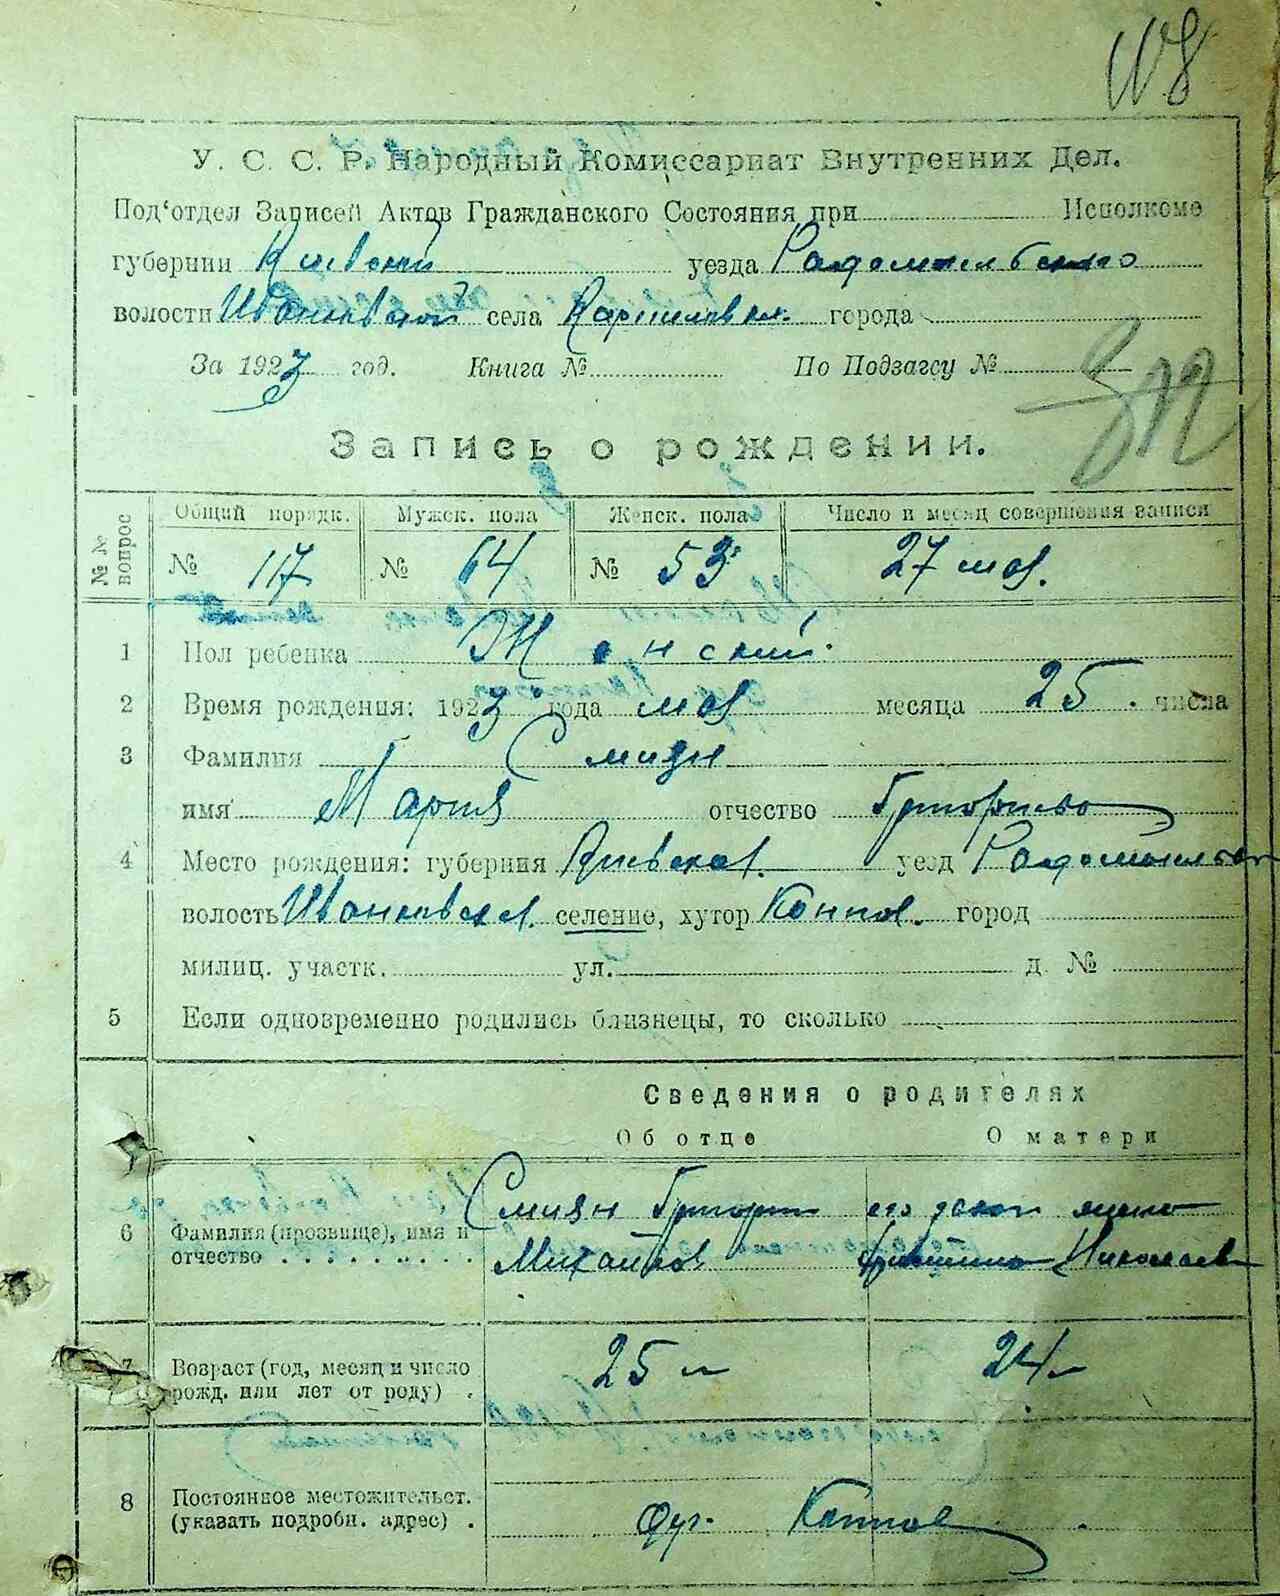 118
У. С. С. Р. Народный Комиссариат Внутренних Дел.
Под‘отдел Записей Актов Гражданского Состояния при Исполкоме
губернии Киевской уезда Радомысльского
волости Иванковской села города
За 1923 год. Книга № По Подзагсу №
312
Запись о рождении.
№№ вопрос Общий порядк. Мужск. пола Женск. пола Число и месяц совершения записи
№ 117 № 64 № 53 27 мая.
1 Пол ребенка Женский.
2 Время рождения: 1923 года мая месяца 25. числа
3 Фамилия Смиян
имя Мария отчество
4 Место рождения: губерния Киевская. уезд
волость Иванковская. селение, хутор город
милиц. участк. ул. д. №
5 Если одновременно родились близнецы, то сколько
Сведения о родителях
Об отце О матери
6 Фамилия (прозвище), имя и Смиян Григорий его
отчество Михайлов Николаев
7 Возраст (год, месяц и число 25 24
рожд. или лет от роду) .
8 Постоянное местожительст.
(указать подробн. адрес) .